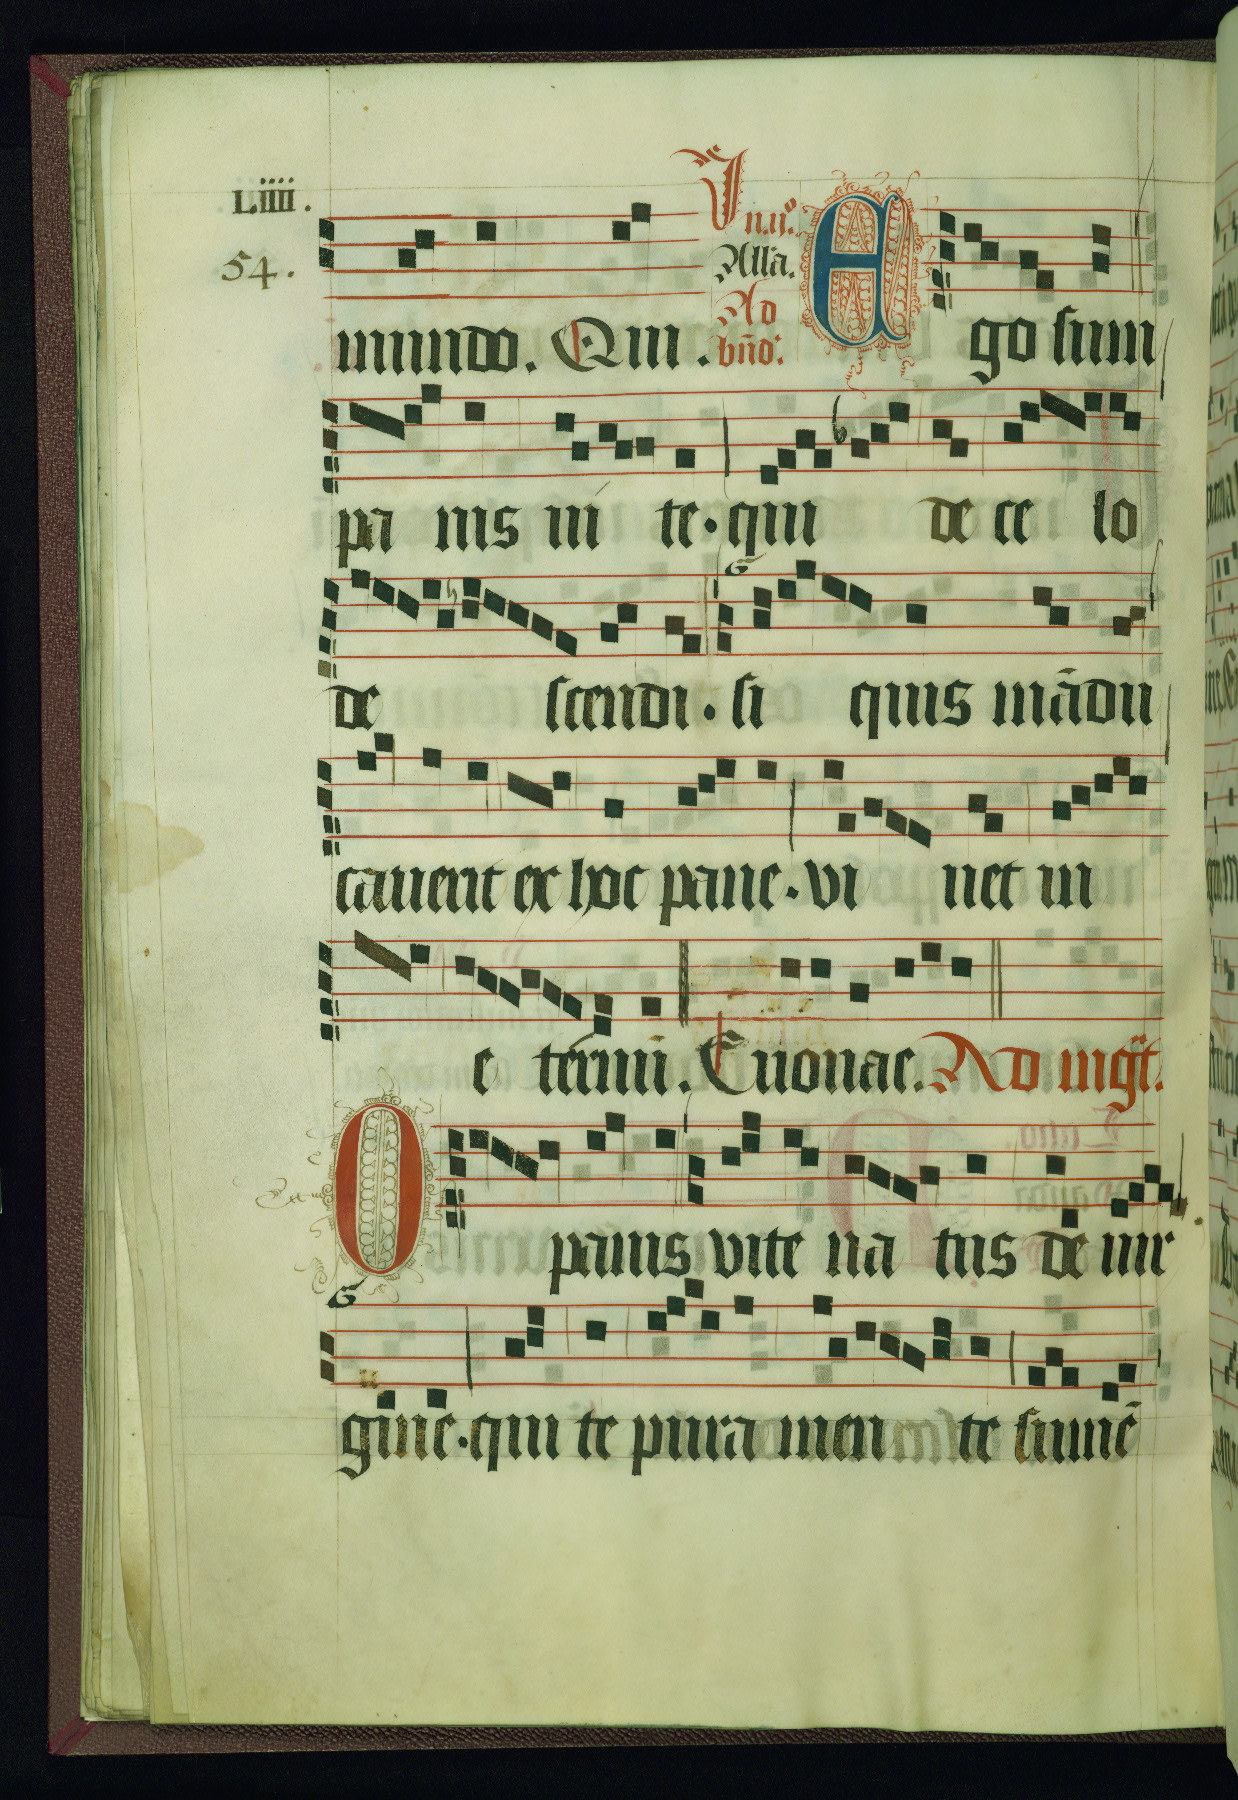 Liiii.
54.
In .ii.º
Allã.
Ad
bñdº:
mundo. Qui. Ego sum
pa nis ui te. qui de ce lo
de scendi. si quis mãdu
cauerit ex hoc pane. vi uet in
e ternũ. Euouae. Ad mgt̃.
O panis vite na tus de uir
gine. qui te pura men te sumẽ